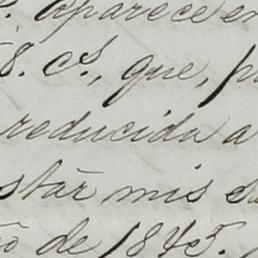 aparece en
8. cs., que, p
reducida a
star mis
de 1845.